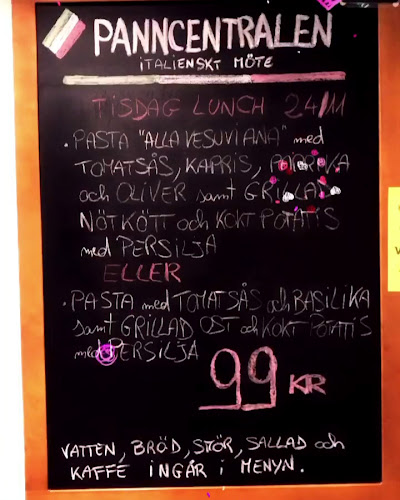 PANNCENTRALEN
ITALIENSKT MÖTE
TISDAG LUNCH 24/11
• PASTA "ALLA VESUVIANA" med
TOMATSÅS, KAPRIS, PAPRIKA
och OLIVER samt GRILLAD
NÖTKÖTT och KOKT POTATIS
med PERSILJA
ELLER
• PASTA med TOMATSÅS och BASILIKA
samt GRILLAD OST och KOKT POTATIS
med PERSILJA
99 KR
VATTEN, BRÖD, SMÖR, SALLAD och
KAFFE INGÅR i MENYN.